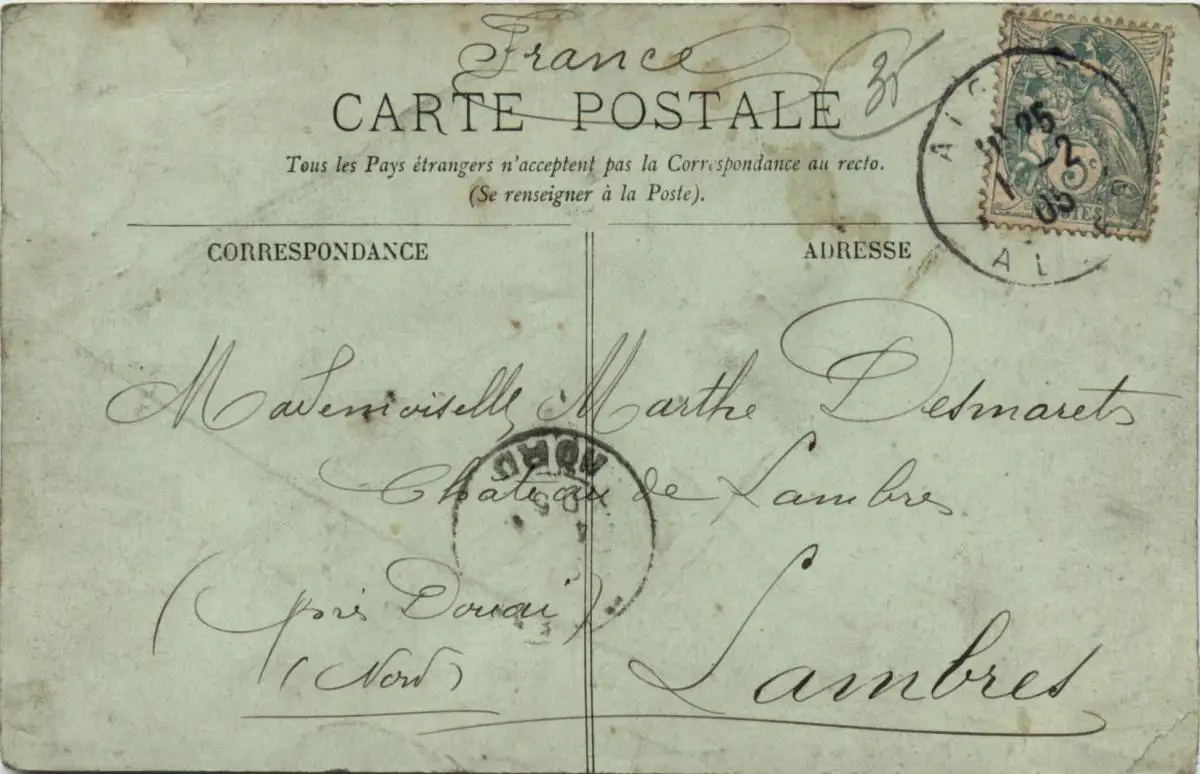 France
35
CARTE POSTALE
Tous les Pays étrangers n'acceptent pas la Correspondance au recto.
(Se renseigner à la Poste).
25
-2
05
5c
CORRESPONDANCE
ADRESSE
Mademoiselle Marthe Desmarets
Château de Lambres
NORD
(près Douai)
(Nord)
Lambres